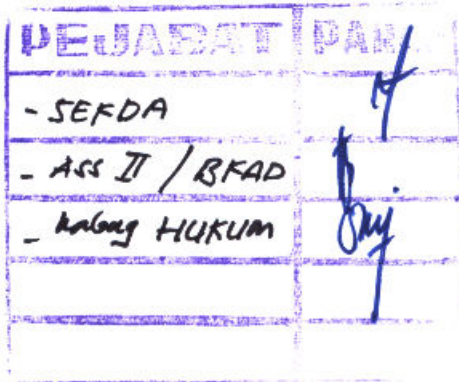 PEJABAT PAR
- SEKDA
- ASS II / BKAD
- Kabag HUKUM